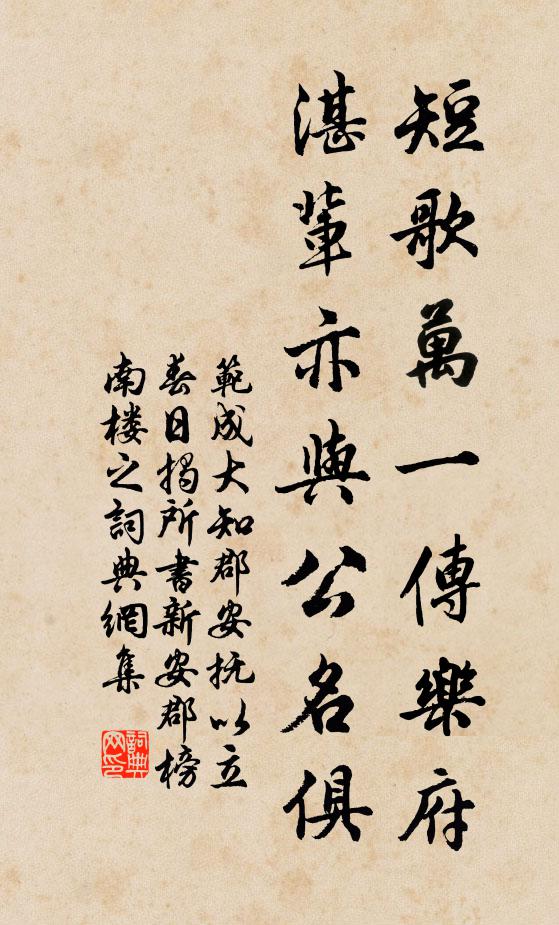 短歌萬一傳樂府
湛輩亦與公名俱
範成大知郡安抚以立
春日揭所書新安郡榜
南楼之詞典網集
詞典網印